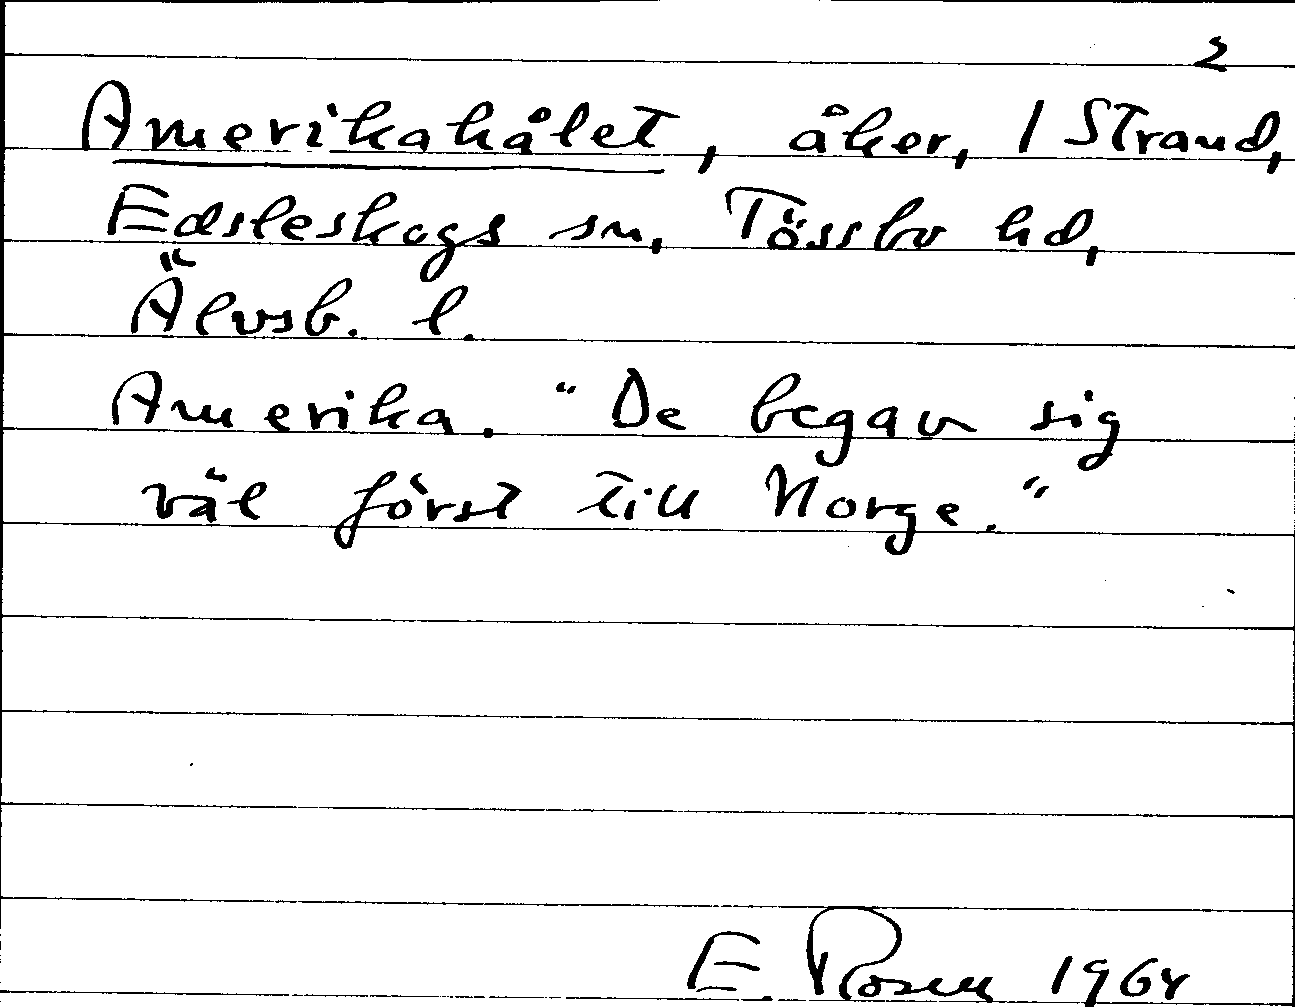 2
Amerikahålet, åker, 1 Strand,
Edsleskogs sn, Tössbo hd,
Älvsb. l.
Amerika. "De begav sig
väl först till Norge."
E. Rosen 1964